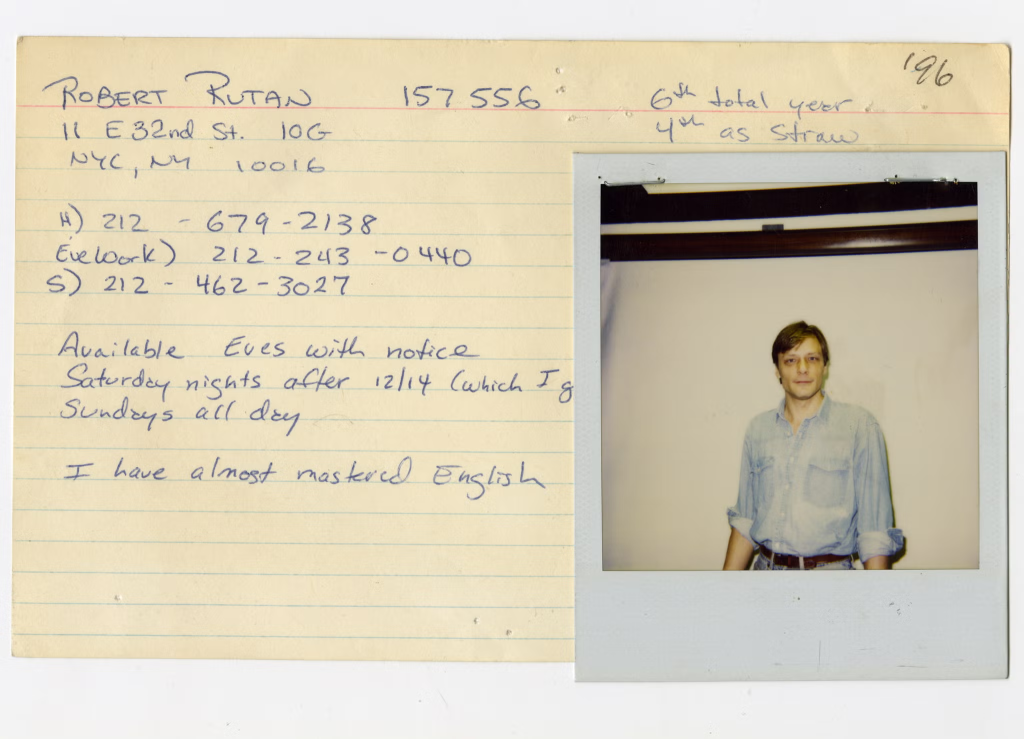 '96
ROBERT RUTAN 157 556 6th total year
11 E 32nd St. 10G 4th as Straw
NYC, NY 10016
H) 212 - 679-2138
Eve Work) 212 - 243 - 0440
S) 212 - 462-3027
Available Eves with notice
Saturday nights after 12/14 (which I g
Sundays all day
I have almost mastered English